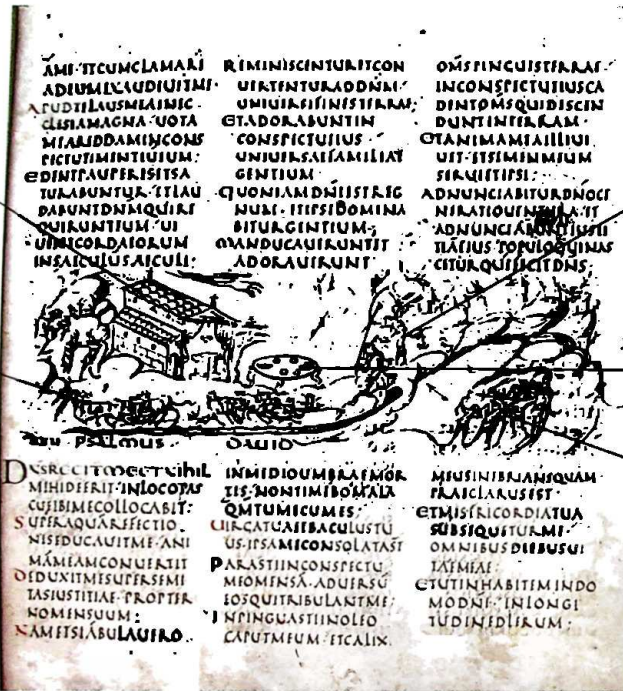 AMI · ETCUMCLAMARE
ADEUM EXAUDIUITME ·
APUDTELAUSMEAINEC
CLESIAMAGNA · UOTA
MEAREDDAMINCONS
PECTUTIMENTIUEUM :
EDENTPAUPERESETSA
TURABUNTUR · ETLAU
DABUNTDNMQUIRE
QUIRUNTEUM · UI
UENTCORDAEORUM
INSAECULUSAECULI :
REMINISCENTURETCON
UERTENTURADDNM ·
UNIUERSIFINESTERRAE ;
ETADORABUNTIN
CONSPECTUEIUS
UNIUERSAEFAMILIAE
GENTIUM ·
QUONIAMDNIESTREG
NUM · ETIPSEDOMINA
BITURGENTIUM ;
MANDUCAUERUNTET
ADORAUERUNT
OMSPINGUESTERRAE ·
INCONSPECTUEIUSCA
DENTOMSQUIDESCEN
DUNTINTERRAM ·
ETANIMAMEAILLIUI
UET · ETSEMENMEUM
SERUIETIPSI :
ADNUNCIABITURDNOGE
NERATIOUENTURA · ET
ADNUNCIABUNTIUSTI
TIAEIUS · POPULOQUINAS
CETURQUEMFECITDNS
XXII PSALMUS DAUID
DNSREGITMEETNIHIL
MIHIDEERIT · INLOCOPAS
CUEIBIMECOLLOCABIT :
SUPERAQUAREFECTIO
NISEDUCAUITME · ANI
MAMEAMCONUERTIT
DEDUXITMESUPERSEMI
TASIUSTITIAE PROPTER
NOMENSUUM :
NAMETSIABULAUERO ·
INMEDIOUMBRAEMOR
TIS · NONTIMEBOMALA
QMTUMECUMES ·
UIRGATUAETBACULUSTU
US · IPSAMECONSOLATAST
PARASTIINCONSPECTU
MEOMENSA · ADUERSU
EOSQUITRIBULANTME :
INPINGUASTIINOLEO
CAPUTMEUM · ETCALIX ·
MEUSINEBRIANSQUAM
PRAECLARUSEST ·
ETMISERICORDIATUA
SUBSEQUETURME ·
OMNIBUS DIEBUSUI
TAEMEAE ·
ETUTINHABITEMINDO
MODNI · INLONGI
TUDINEDIERUM :